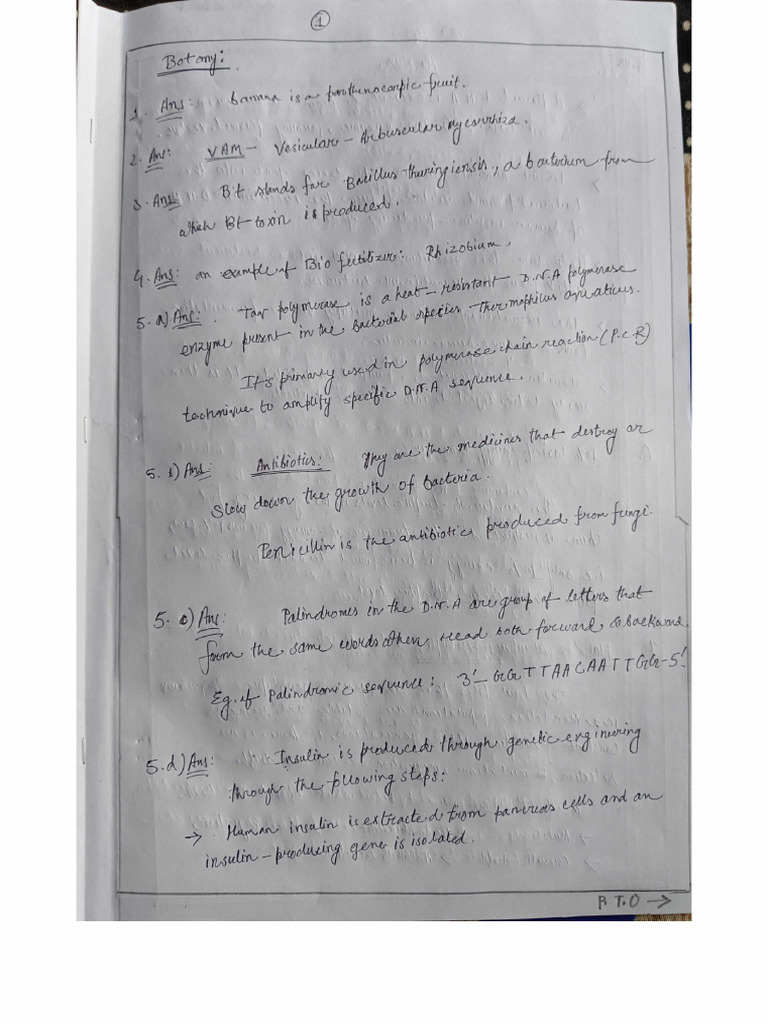 1
Botany:
1. Ans: banana is a parthenocarpic fruit.
2. Ans: VAM - Vesicular - Arbuscular Mycorrhiza.
3. Ans: Bt stands for Bacillus thuringiensis, a bacterium from
which Bt toxin is produced.
4. Ans: an example of Bio fertilizer: Rhizobium.
5. a) Ans: Taq polymerase is a heat-resistant D.N.A polymerase
enzyme present in the bacterial species thermophilus aquaticus.
It's primary used in polymerase chain reaction (P.C.R)
technique to amplify specific D.N.A sequence.
5. b) Ans: Antibiotics: They are the medicines that destroy or
slow down the growth of bacteria.
Penicillin is the antibiotic produced from fungi.
5. c) Ans: Palindromes in the D.N.A are group of letters that
form the same words when read both forward & backward
Eg. of Palindromic sequence: 3'- GGTTAACAATTGG-5'.
5. d) Ans: Insulin is produced through genetic enginering
through the following steps:
→ Human insulin is extracted from pancreas cells and an
insulin-producing gene is isolated.
P.T.O →